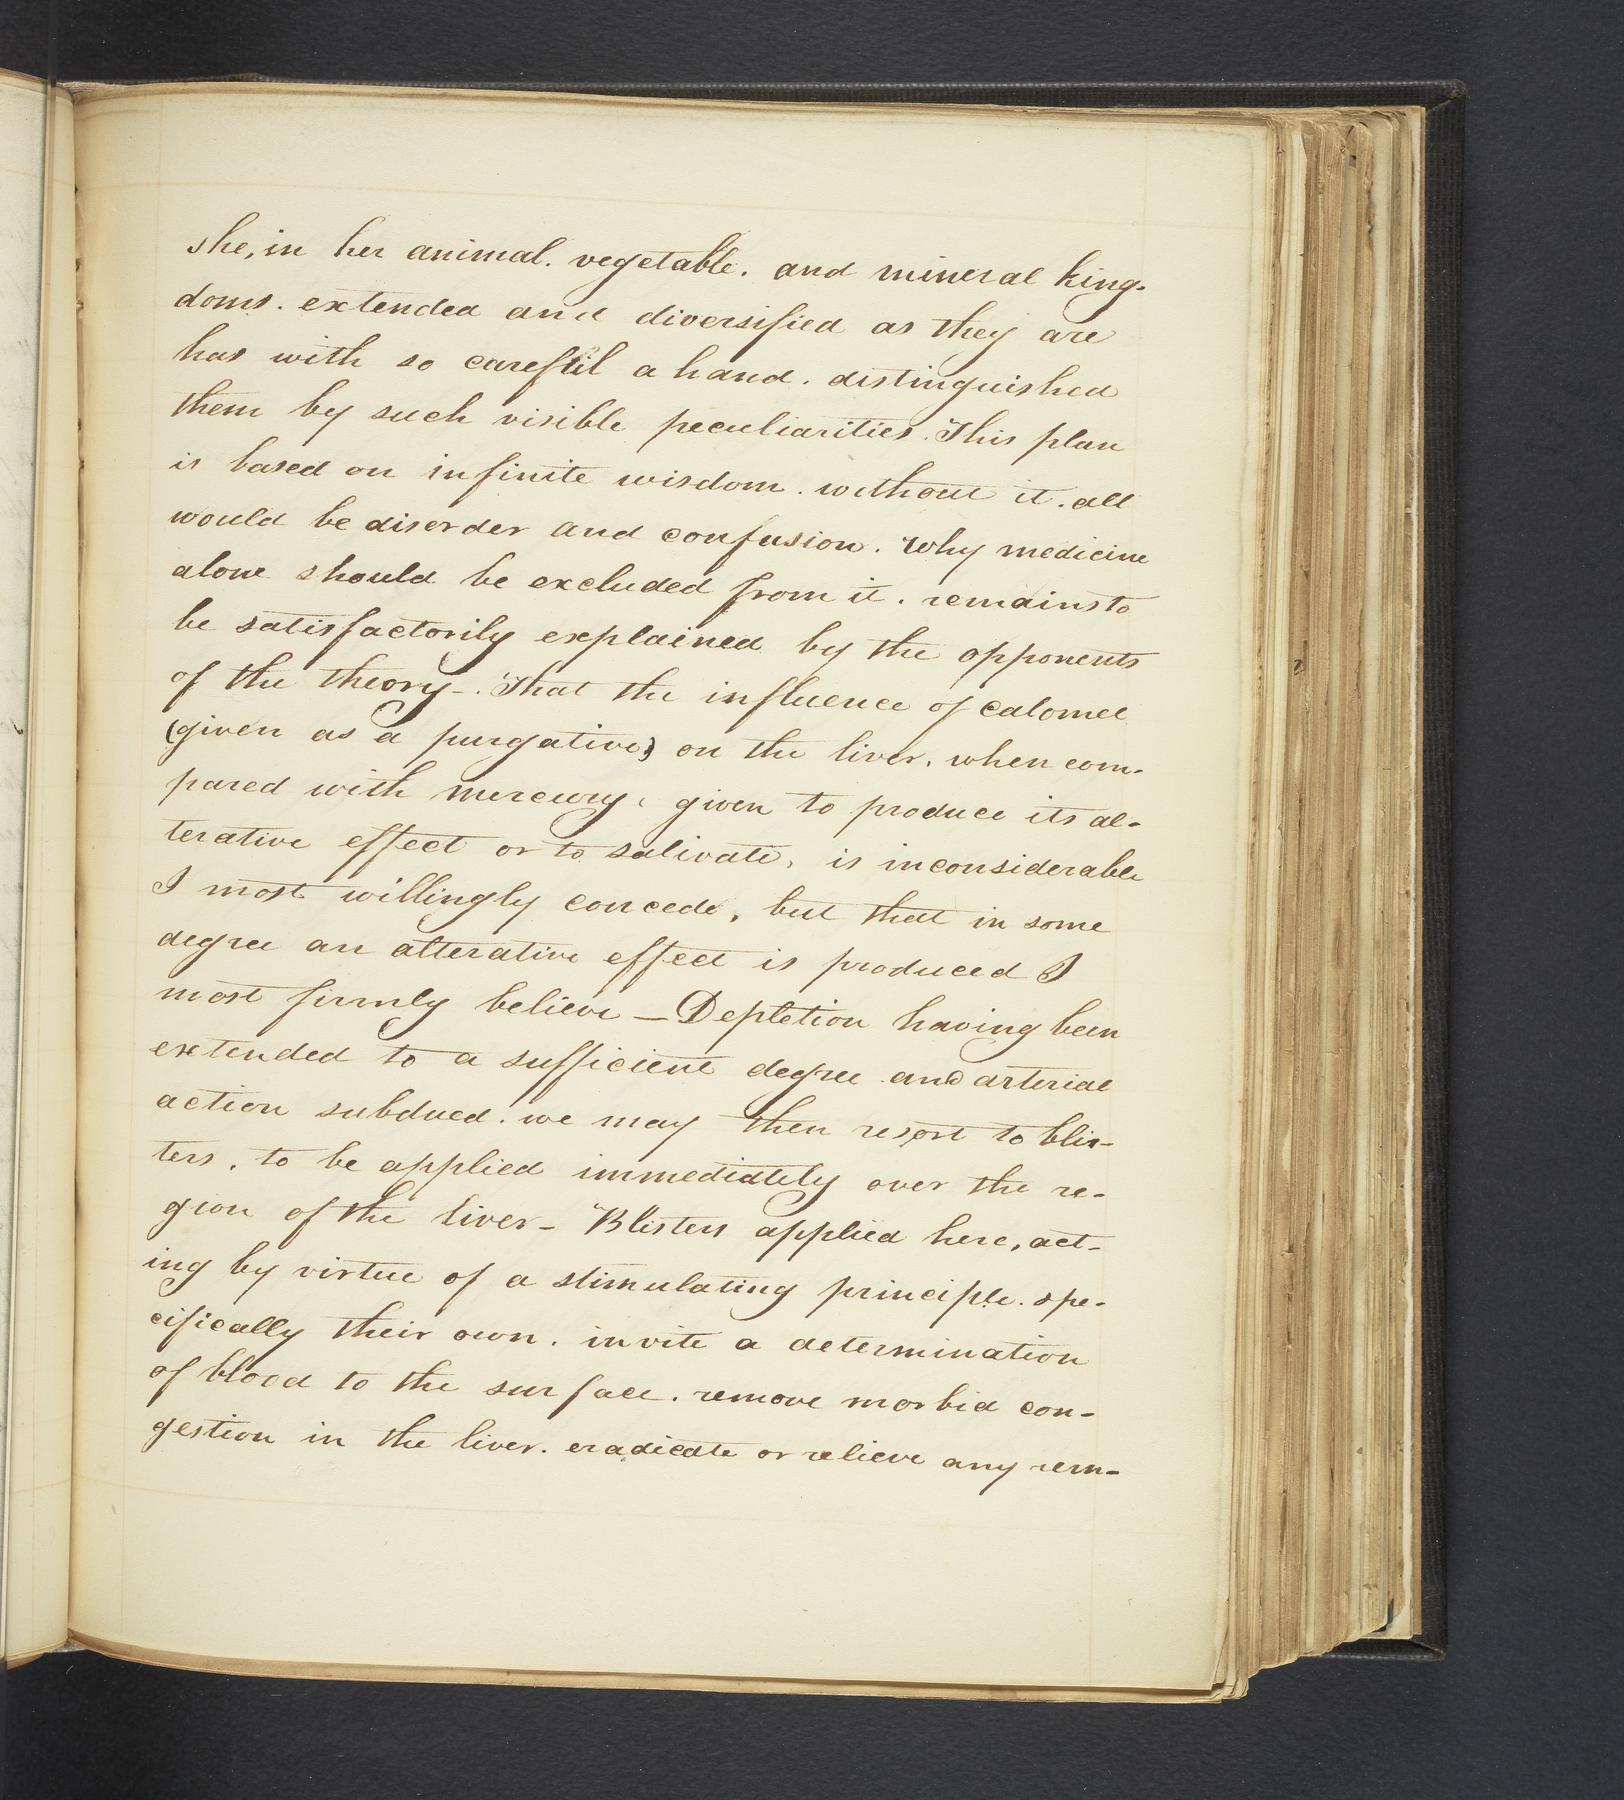 she, in her animal. vegetable. and mineral king-
doms. extended and diversified as they are
has with so careful a hand. distinguished
them by such visible peculiarities. This plan
is based on infinite wisdom. without it. all
would be disorder and confusion. Why medicine
alone should be excluded from it. remains to
be satisfactorily explained by the opponents
of the theory-. That the influence of calomel
(given as a purgative) on the liver. when com-
pared with mercury, given to produce its al-
terative effect or to salivate, is inconsiderable
I most willingly concede, but that in some
degree an alterative effect is produced I
most firmly believe — Depletion having been
extended to a sufficient degree and arterial
action subdued. we may then resort to blis-
ters, to be applied immediately over the re-
gion of the liver - Blisters applied here, act-
ing by virtue of a stimulating principle. spe-
cifically their own. invite a determination
of blood to the surface. remove morbid con-
gestion in the liver. eradicate or relieve any rem-